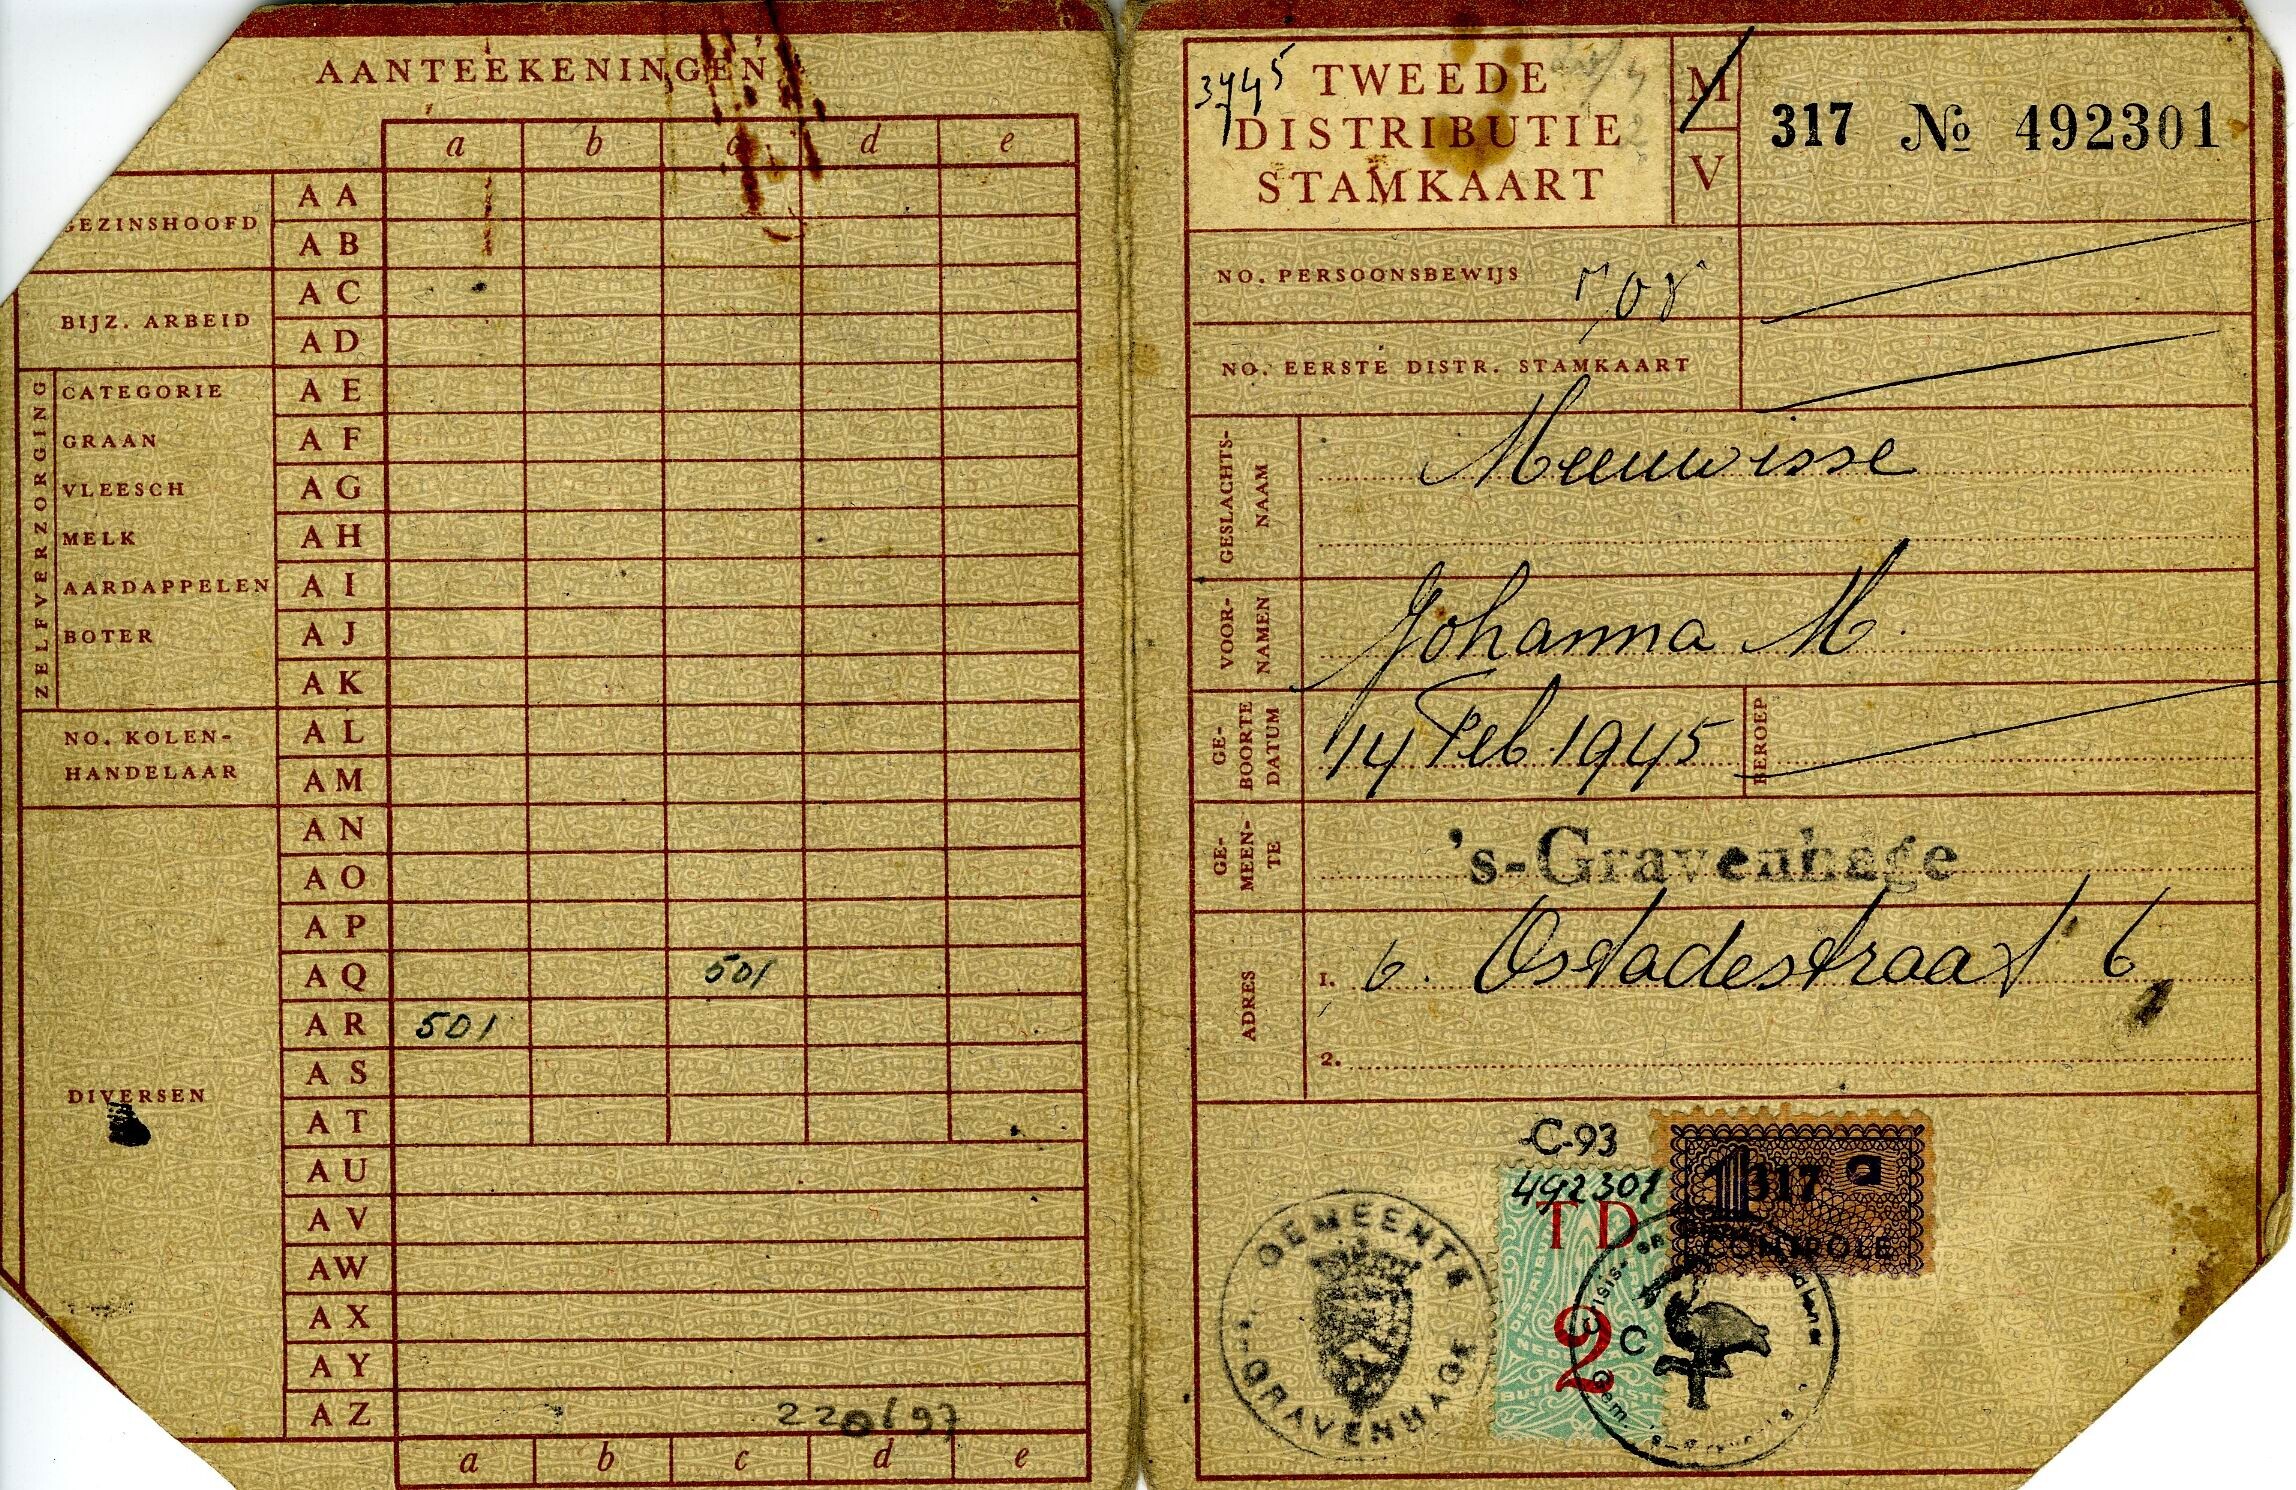 AANTEEKENINGEN
a b c d e
GEZINSHOOFD
AA
AB
BIJZ. ARBEID
AC
AD
ZELFVERZORGING
CATEGORIE AE
GRAAN AF
VLEESCH AG
MELK AH
AARDAPPELEN AI
BOTER AJ
AK
NO. KOLEN-
HANDELAAR
AL
AM
DIVERSEN
AN
AO
AP
AQ 501
AR 501
AS
AT
AU
AV
AW
AX
AY
AZ 220/97
a b c d e
3745
TWEEDE
DISTRIBUTIE
STAMKAART
M
V
317 No 492301
NO. PERSOONSBEWIJS
NO. EERSTE DISTR. STAMKAART
GESLACHTS-
NAAM
Meeuwisse
VOOR-
NAMEN
Johanna M.
GE-
BOORTE
DATUM
14 Feb. 1945
BEROEP
GE-
MEEN-
TE
's-Gravenhage
ADRES
1. v. Ostadestraat 6
2.
C-93
492301
TD
2
1 317 a
CONTROLE
GEMEENTE
'S-GRAVENHAGE
C
Gem. 's-Gravenhage